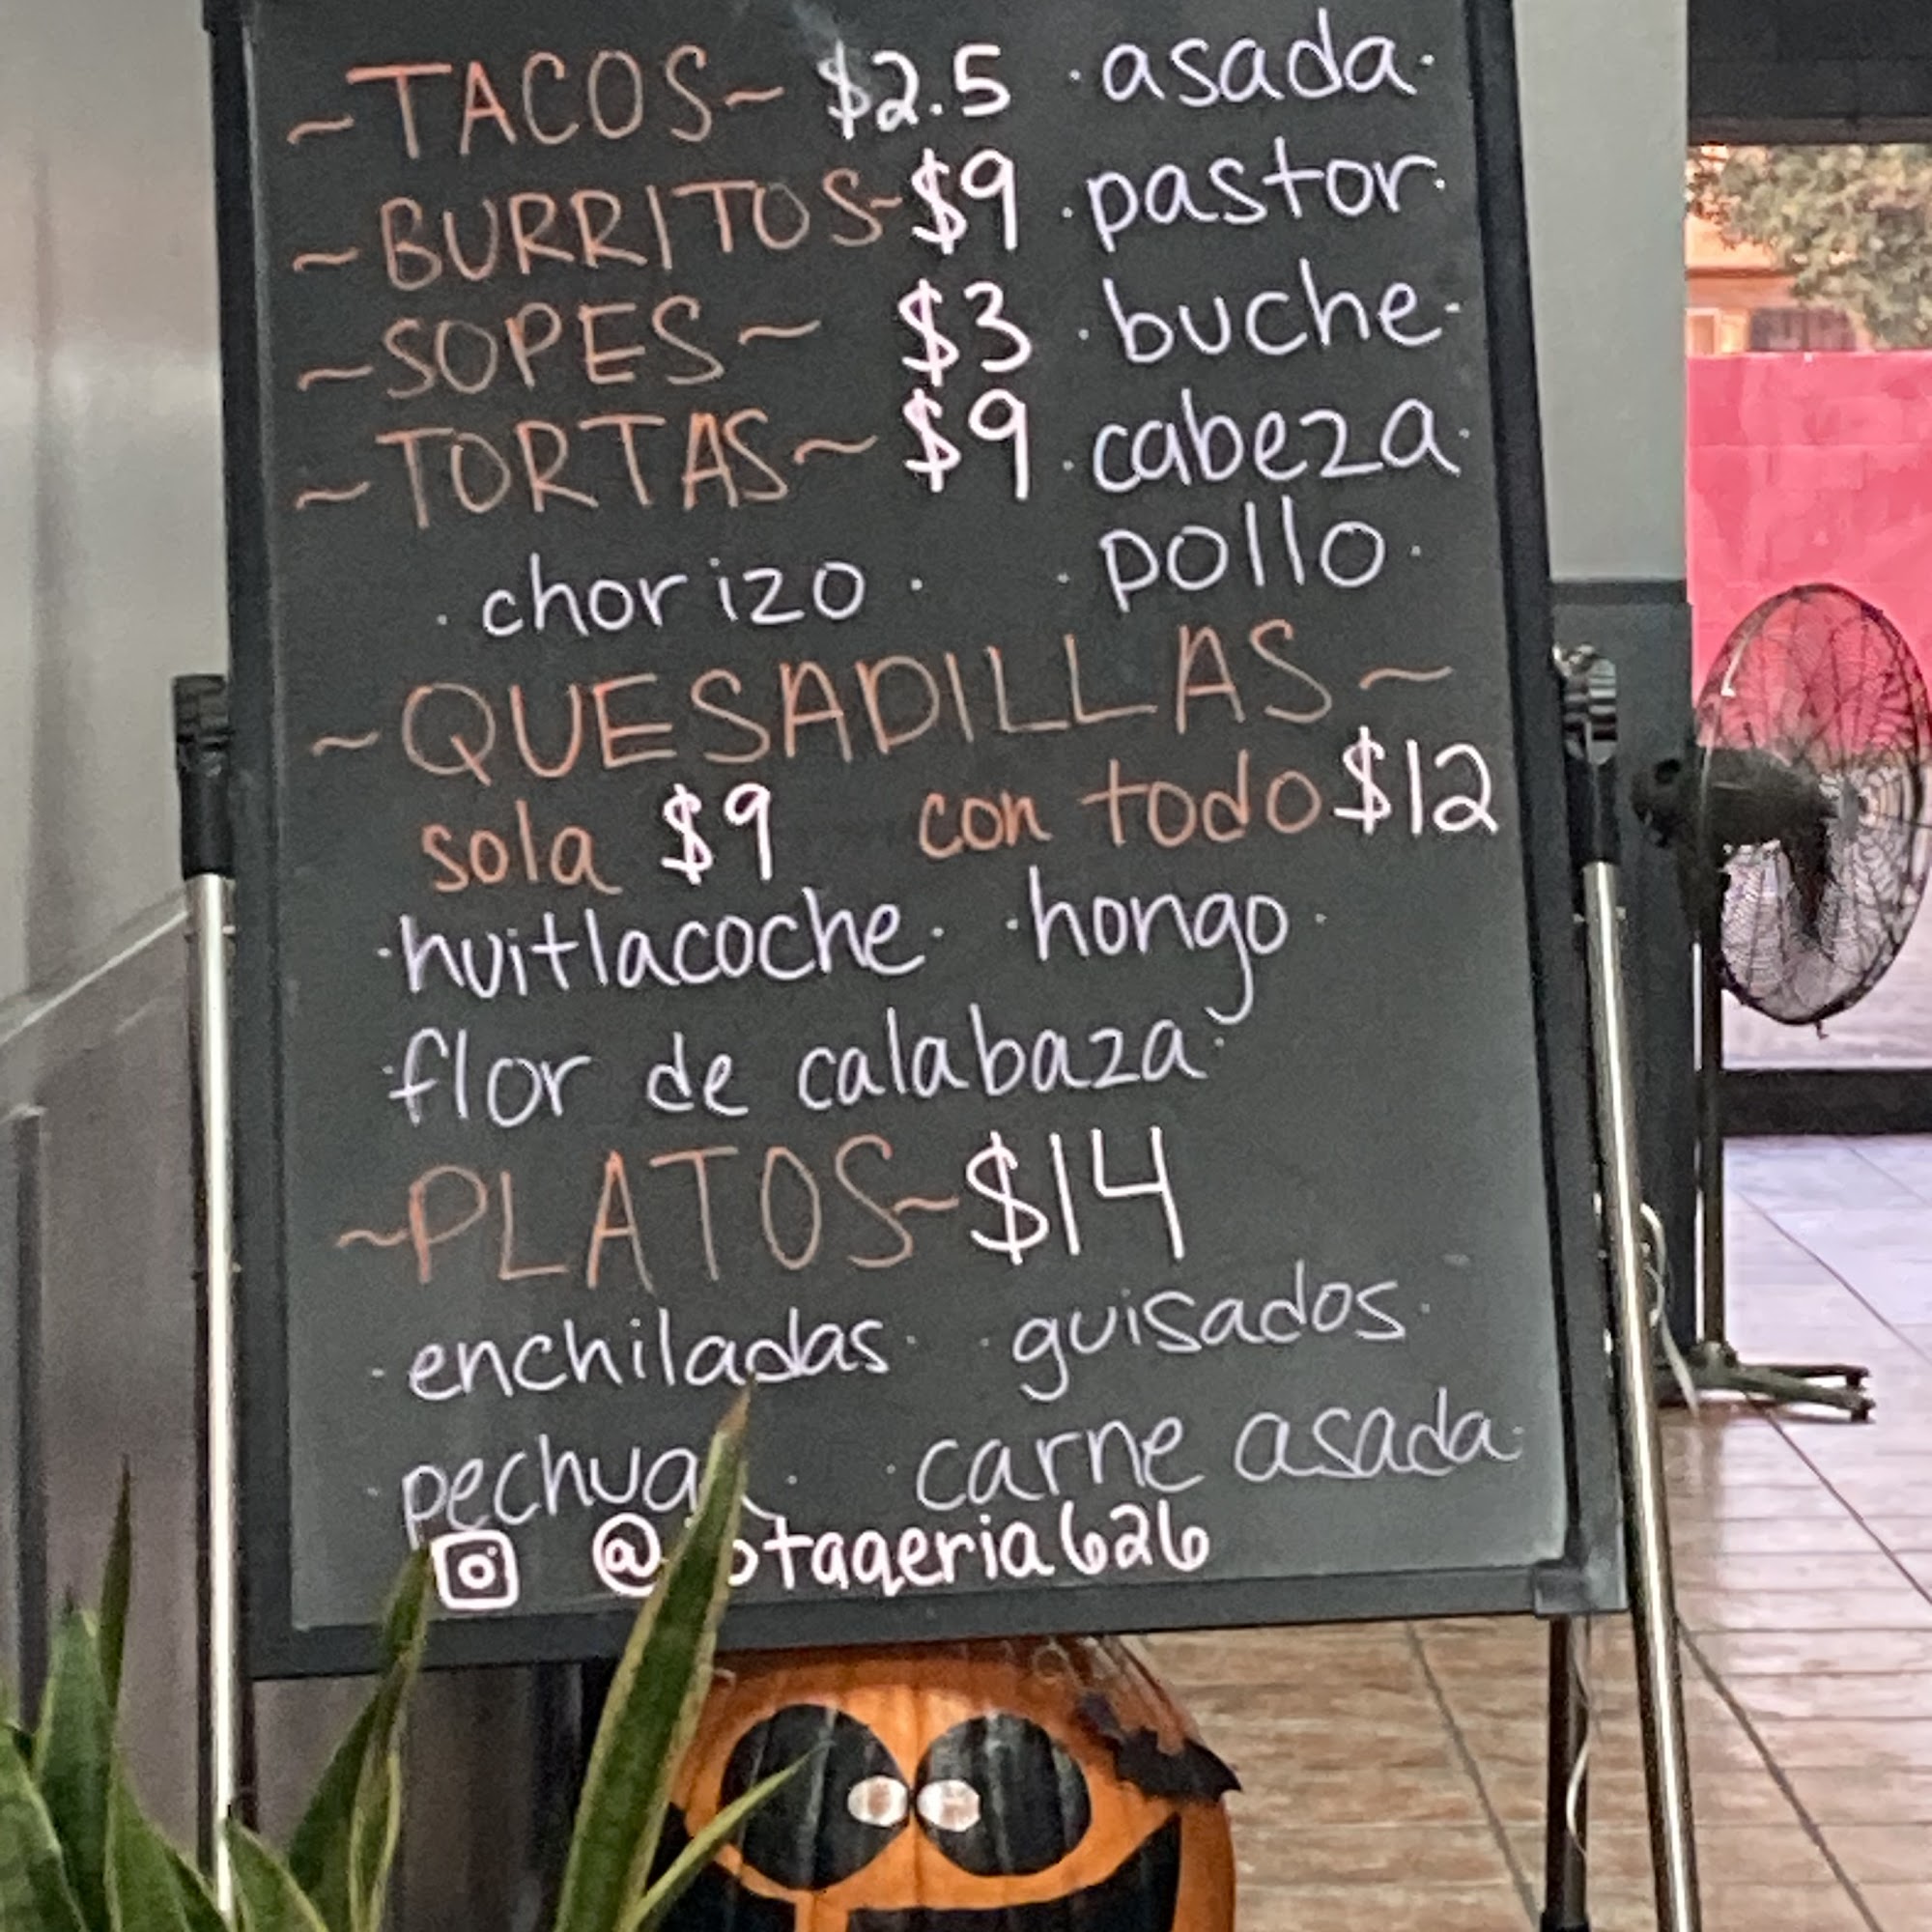 ~TACOS~ $2.5 ·asada·
~BURRITOS~ $9 ·pastor·
~SOPES~ $3 ·buche·
~TORTAS~ $9 ·cabeza·
·chorizo· ·pollo·
~QUESADILLAS~
sola $9 con todo $12
·huitlacoche· ·hongo·
·flor de calabaza·
~PLATOS~ $14
·enchiladas· ·guisados·
·pechuga· ·carne asada·